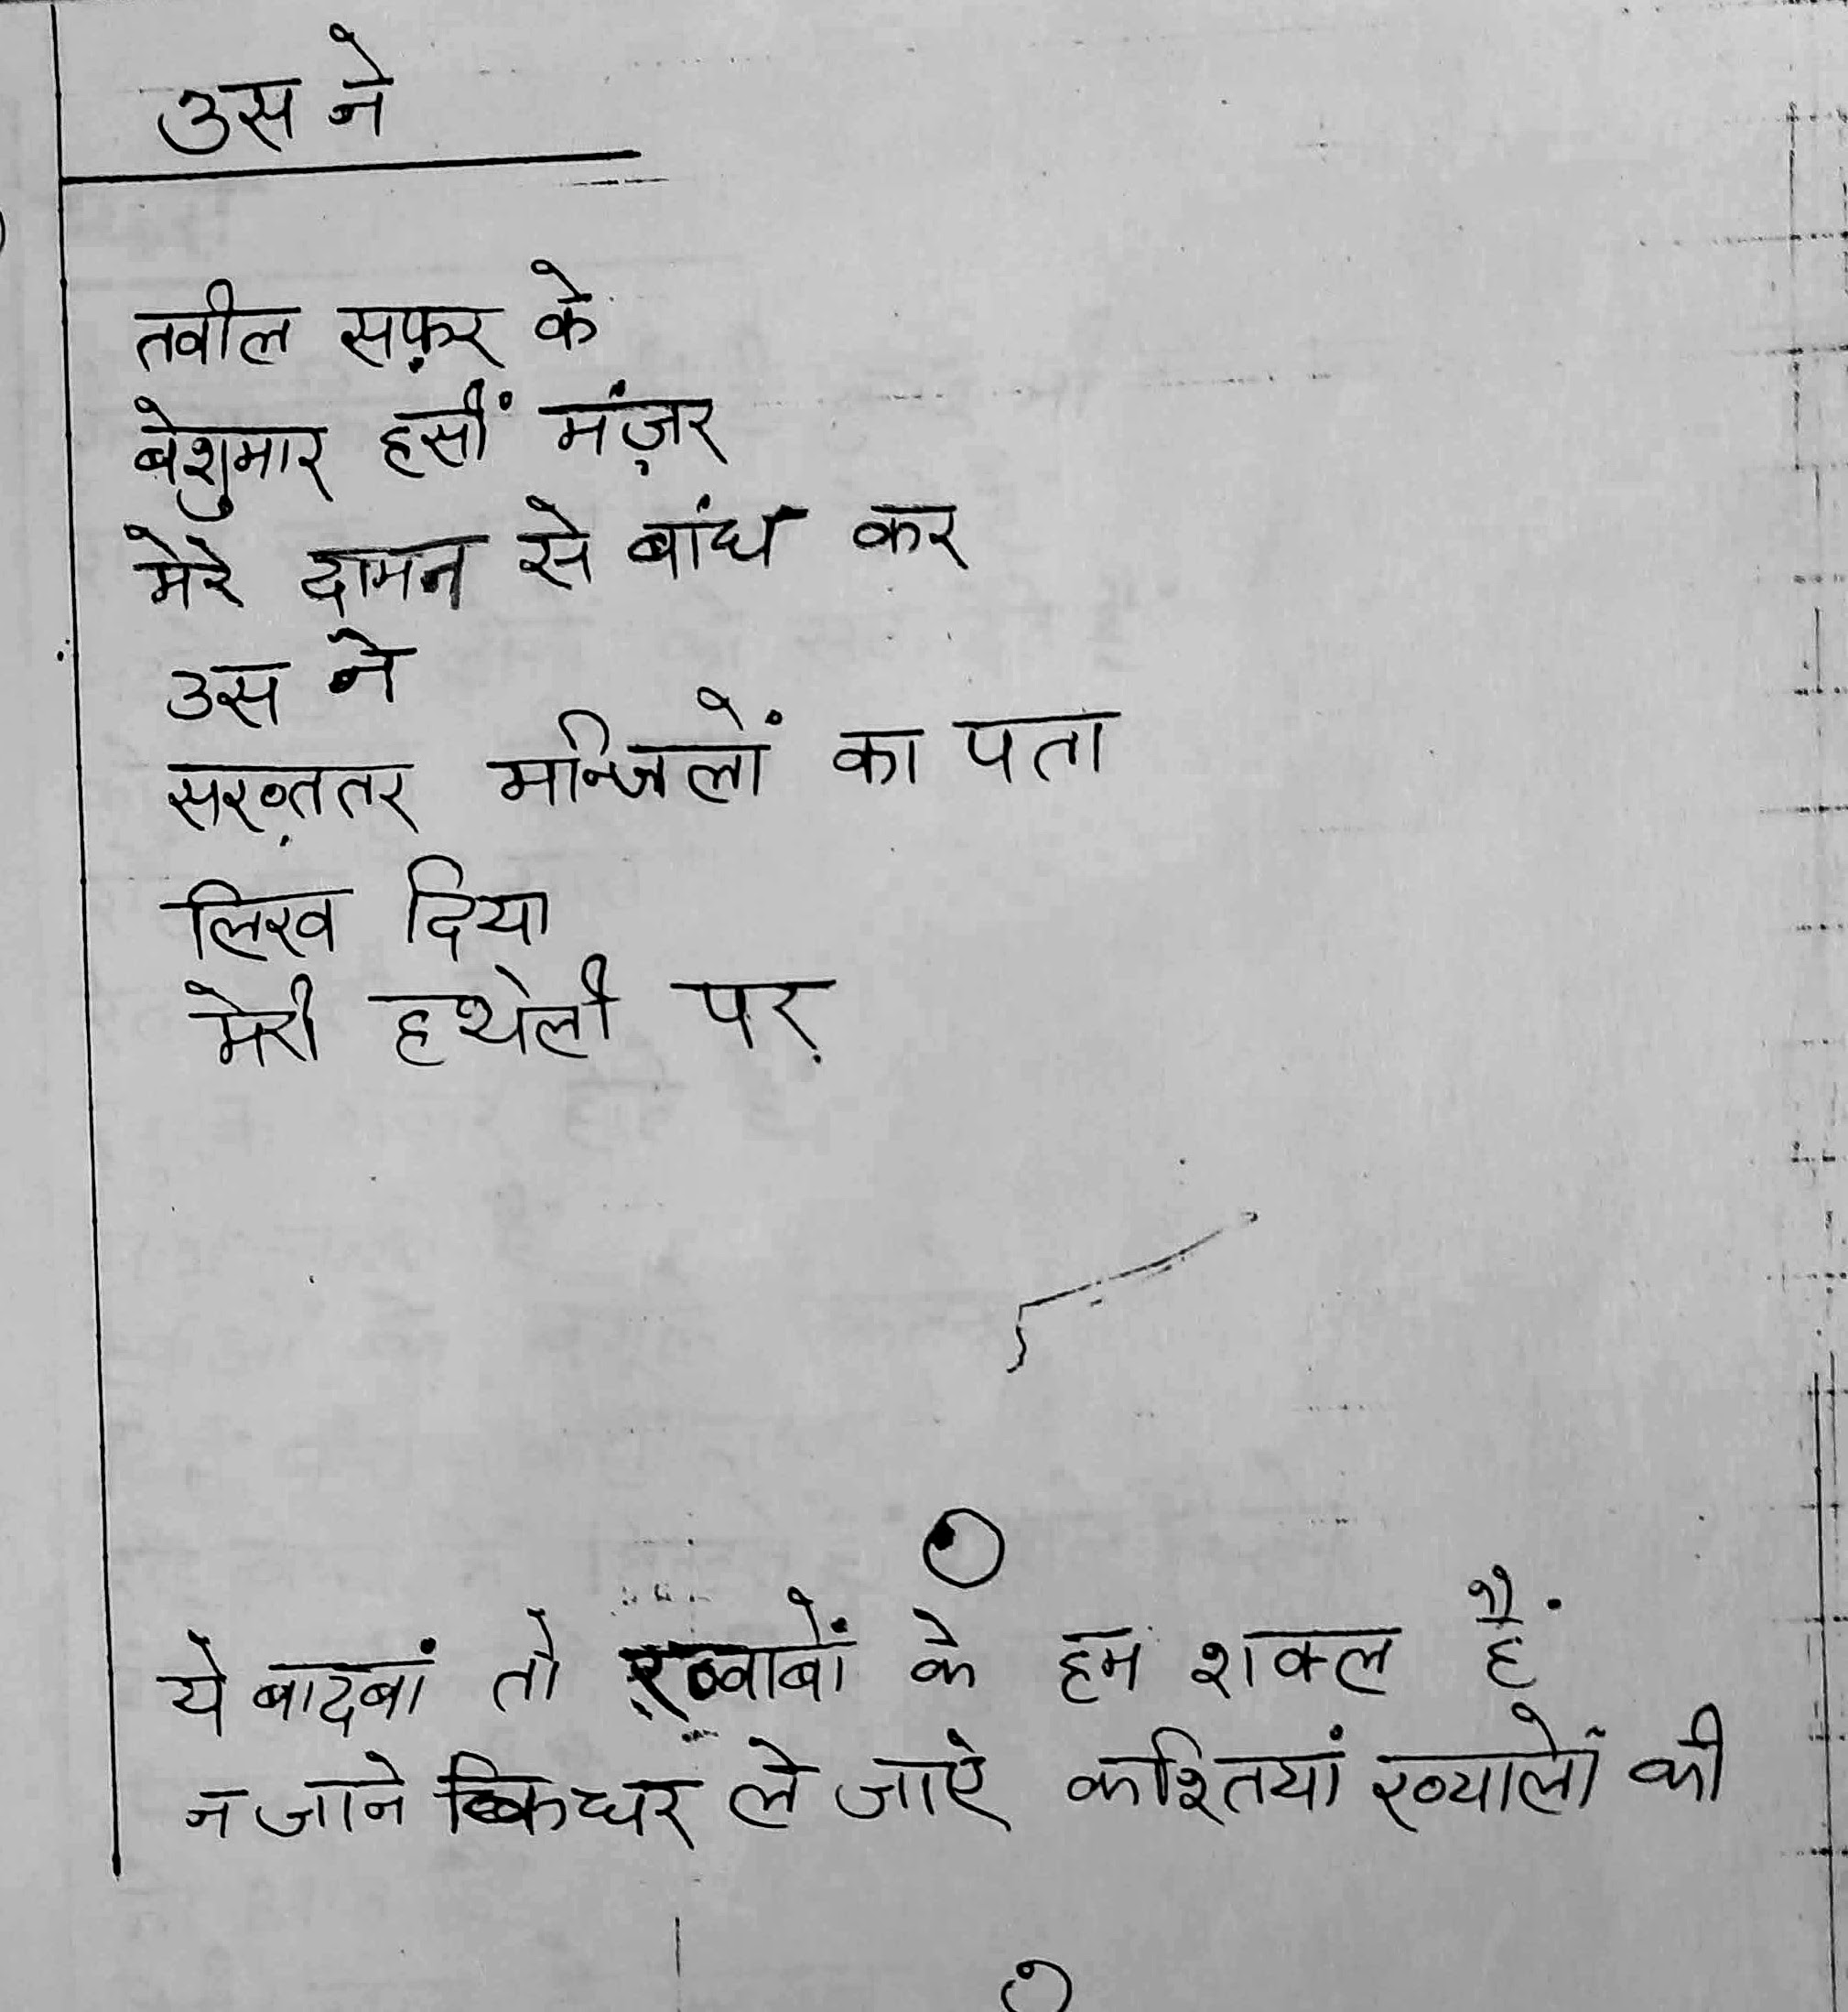 उस ने
तवील सफ़र के
बेशुमार हसीं मंज़र
मेरे दामन से बांध कर
उस ने
सख़्ततर मन्जिलों का पता
लिख दिया
मेरी हथेली पर
ये बादबां तो ख़्वाबों के हम शक्ल हैं
न जाने किधर ले जाऐ कश्तियां ख्यालों की